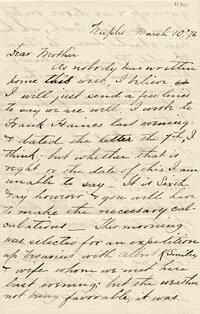 1870
Naples March 10th 76
Dear Mother
As nobody has written
home this week, I believe
I will just send a few lines
to say we are well. I wrote to
Frank Haines last evening
& dated the letter the 7th, I
think, but whether that is
right or the date of this I am
unable to say – It is Sixth
day however & you will have
to make the necessary cal-
culations – This morning
was selected for an expedition
up Vesuvius with Albert (Smiley
& wife whom we met here
last evening, but the weather
not being favorable, it was